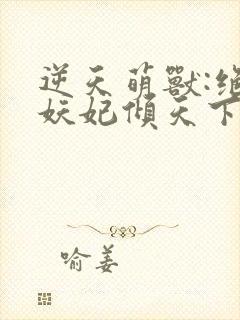 逆天萌獸:絕
妖妃傾天下
喻姜